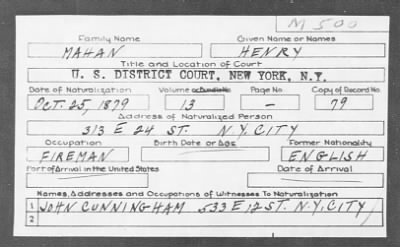 M 500
Family Name Given Name or Names
MAHAN HENRY
Title and Location of Court
U. S. DISTRICT COURT, NEW YORK, N.Y.
Date of Naturalization Volume or Bundle No. Page No. Copy of Record No.
OCT. 25, 1879 13 — 79
Address of Naturalized Person
313 E 24 ST. N.Y.CITY
Occupation Birth Date or Age Former Nationality
FIREMAN ENGLISH
Port of Arrival in the United States Date of Arrival
Names, Addresses and Occupations of Witnesses To Naturalization
1 JOHN CUNNINGHAM 533 E 12 ST. N.Y.CITY
2